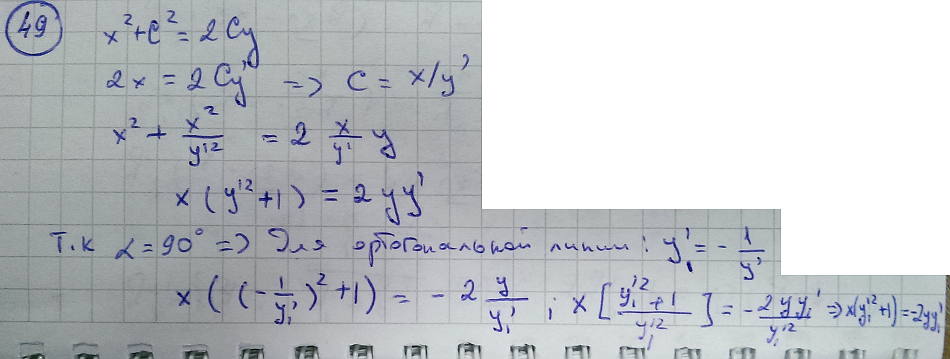 49 x² + C² = 2Cy
2x = 2Cy' => C = x/y'
x² + x²/y'² = 2 x/y' y
x(y'² + 1) = 2yy'
Т.к α = 90° => Для ортогональной линии: y₁' = - 1/y'
x((-1/y₁')² + 1) = -2 y/y₁' ; x[(y₁'² + 1)/y₁'²] = -2yy₁'/y₁'² => x(y₁'² + 1) = -2yy₁'